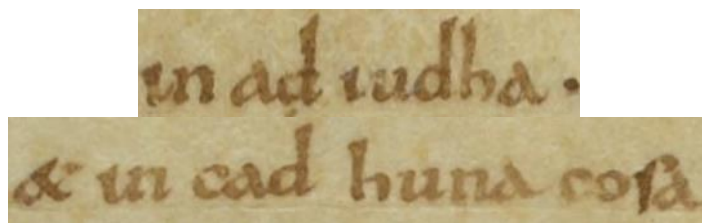 in ad iudha ·
& in cad huna cosa